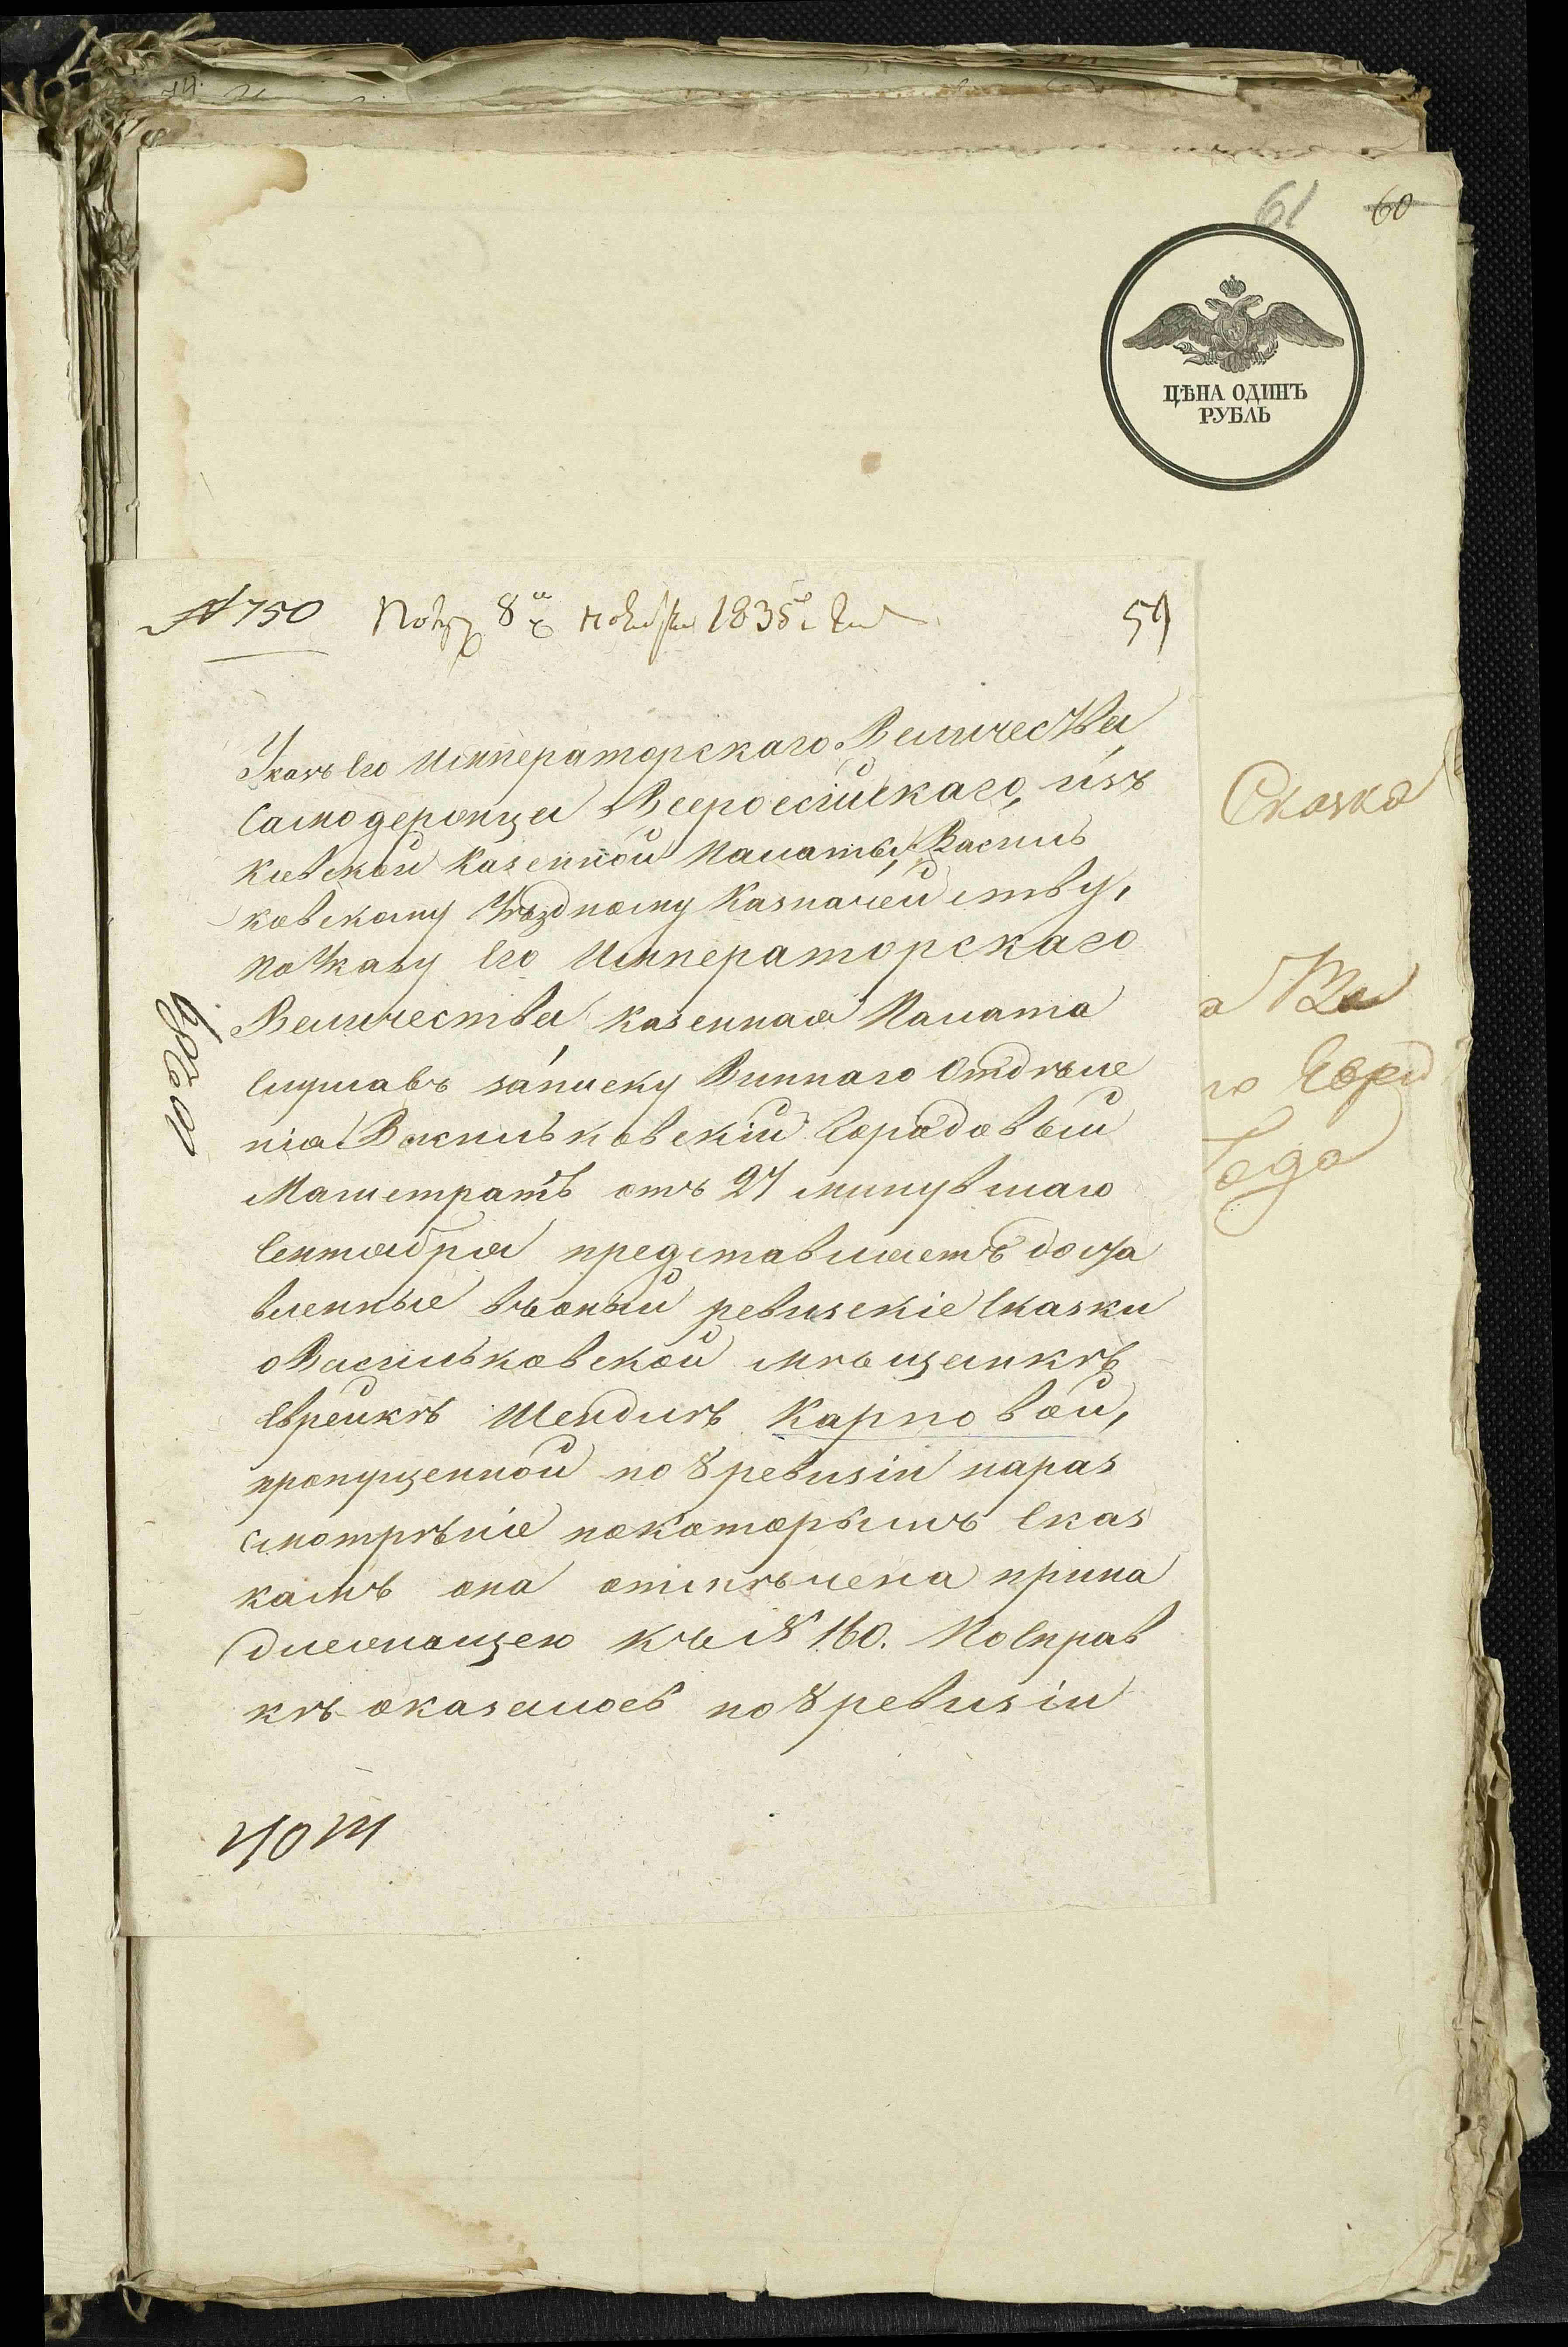 61 60
ЦѢНА ОДИНЪ
РУБЛЬ
№ 750 Получ 8го ноября 1835го года
59
Указъ Его Императорскаго Величества
Самодержца Всероссійскаго, изъ
Кіевской Казенной Палаты, Василь
ковскому Уѣздному Казначейству,
По Указу Его Императорскаго
Величества Казенная Палата
слушавъ записку Виннаго Отдѣле
нія Васильковскій Городовый
Магистратъ отъ 27 минувшаго
Сентября представляетъ доста
вленные въ оный ревизскіе сказки
о Васильковской мѣщанкѣ
Еврейкѣ Шендлѣ Карповой,
пропущенной по 8 ревизіи на раз
смотрѣніе по которымъ сказ
камъ она отмѣчена прина
длежащею къ № 160. По справ
кѣ оказалось по 8 ревизіи
Сказка
а Ва
го Евре
Года